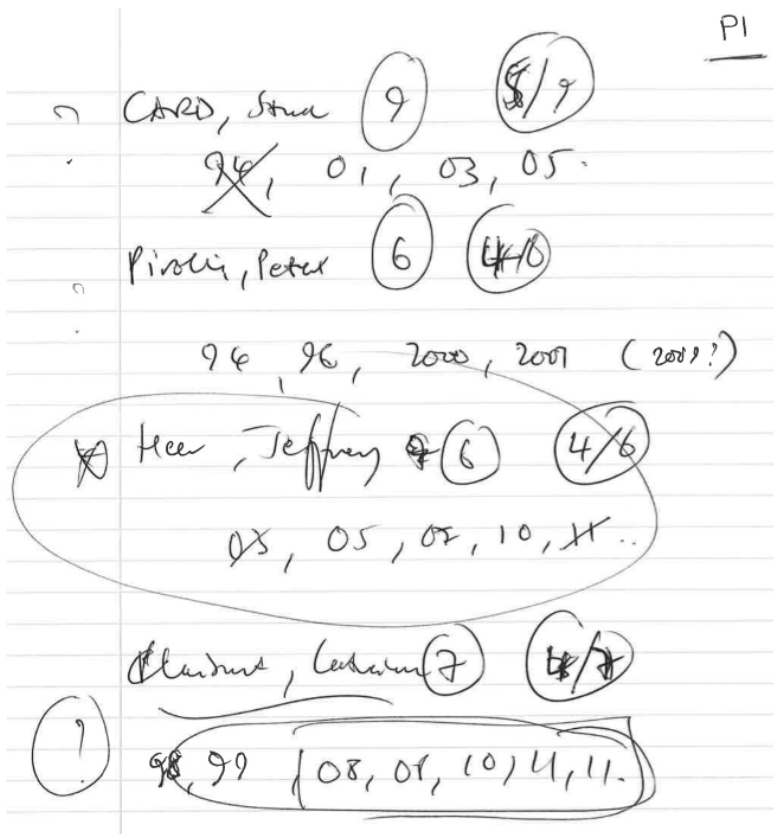 P1
? CARD, Stuart 9 /9
94, 01, 03, 05.
? Pirolli, Peter 6 4/6
94, 96, 2000, 2001 (200?)
Heer, Jeffrey 6 4/6
03, 05, 10, 11..
Plaisant, Catherine 7 /7
? 98, 99, 08, 10, 11, 11.